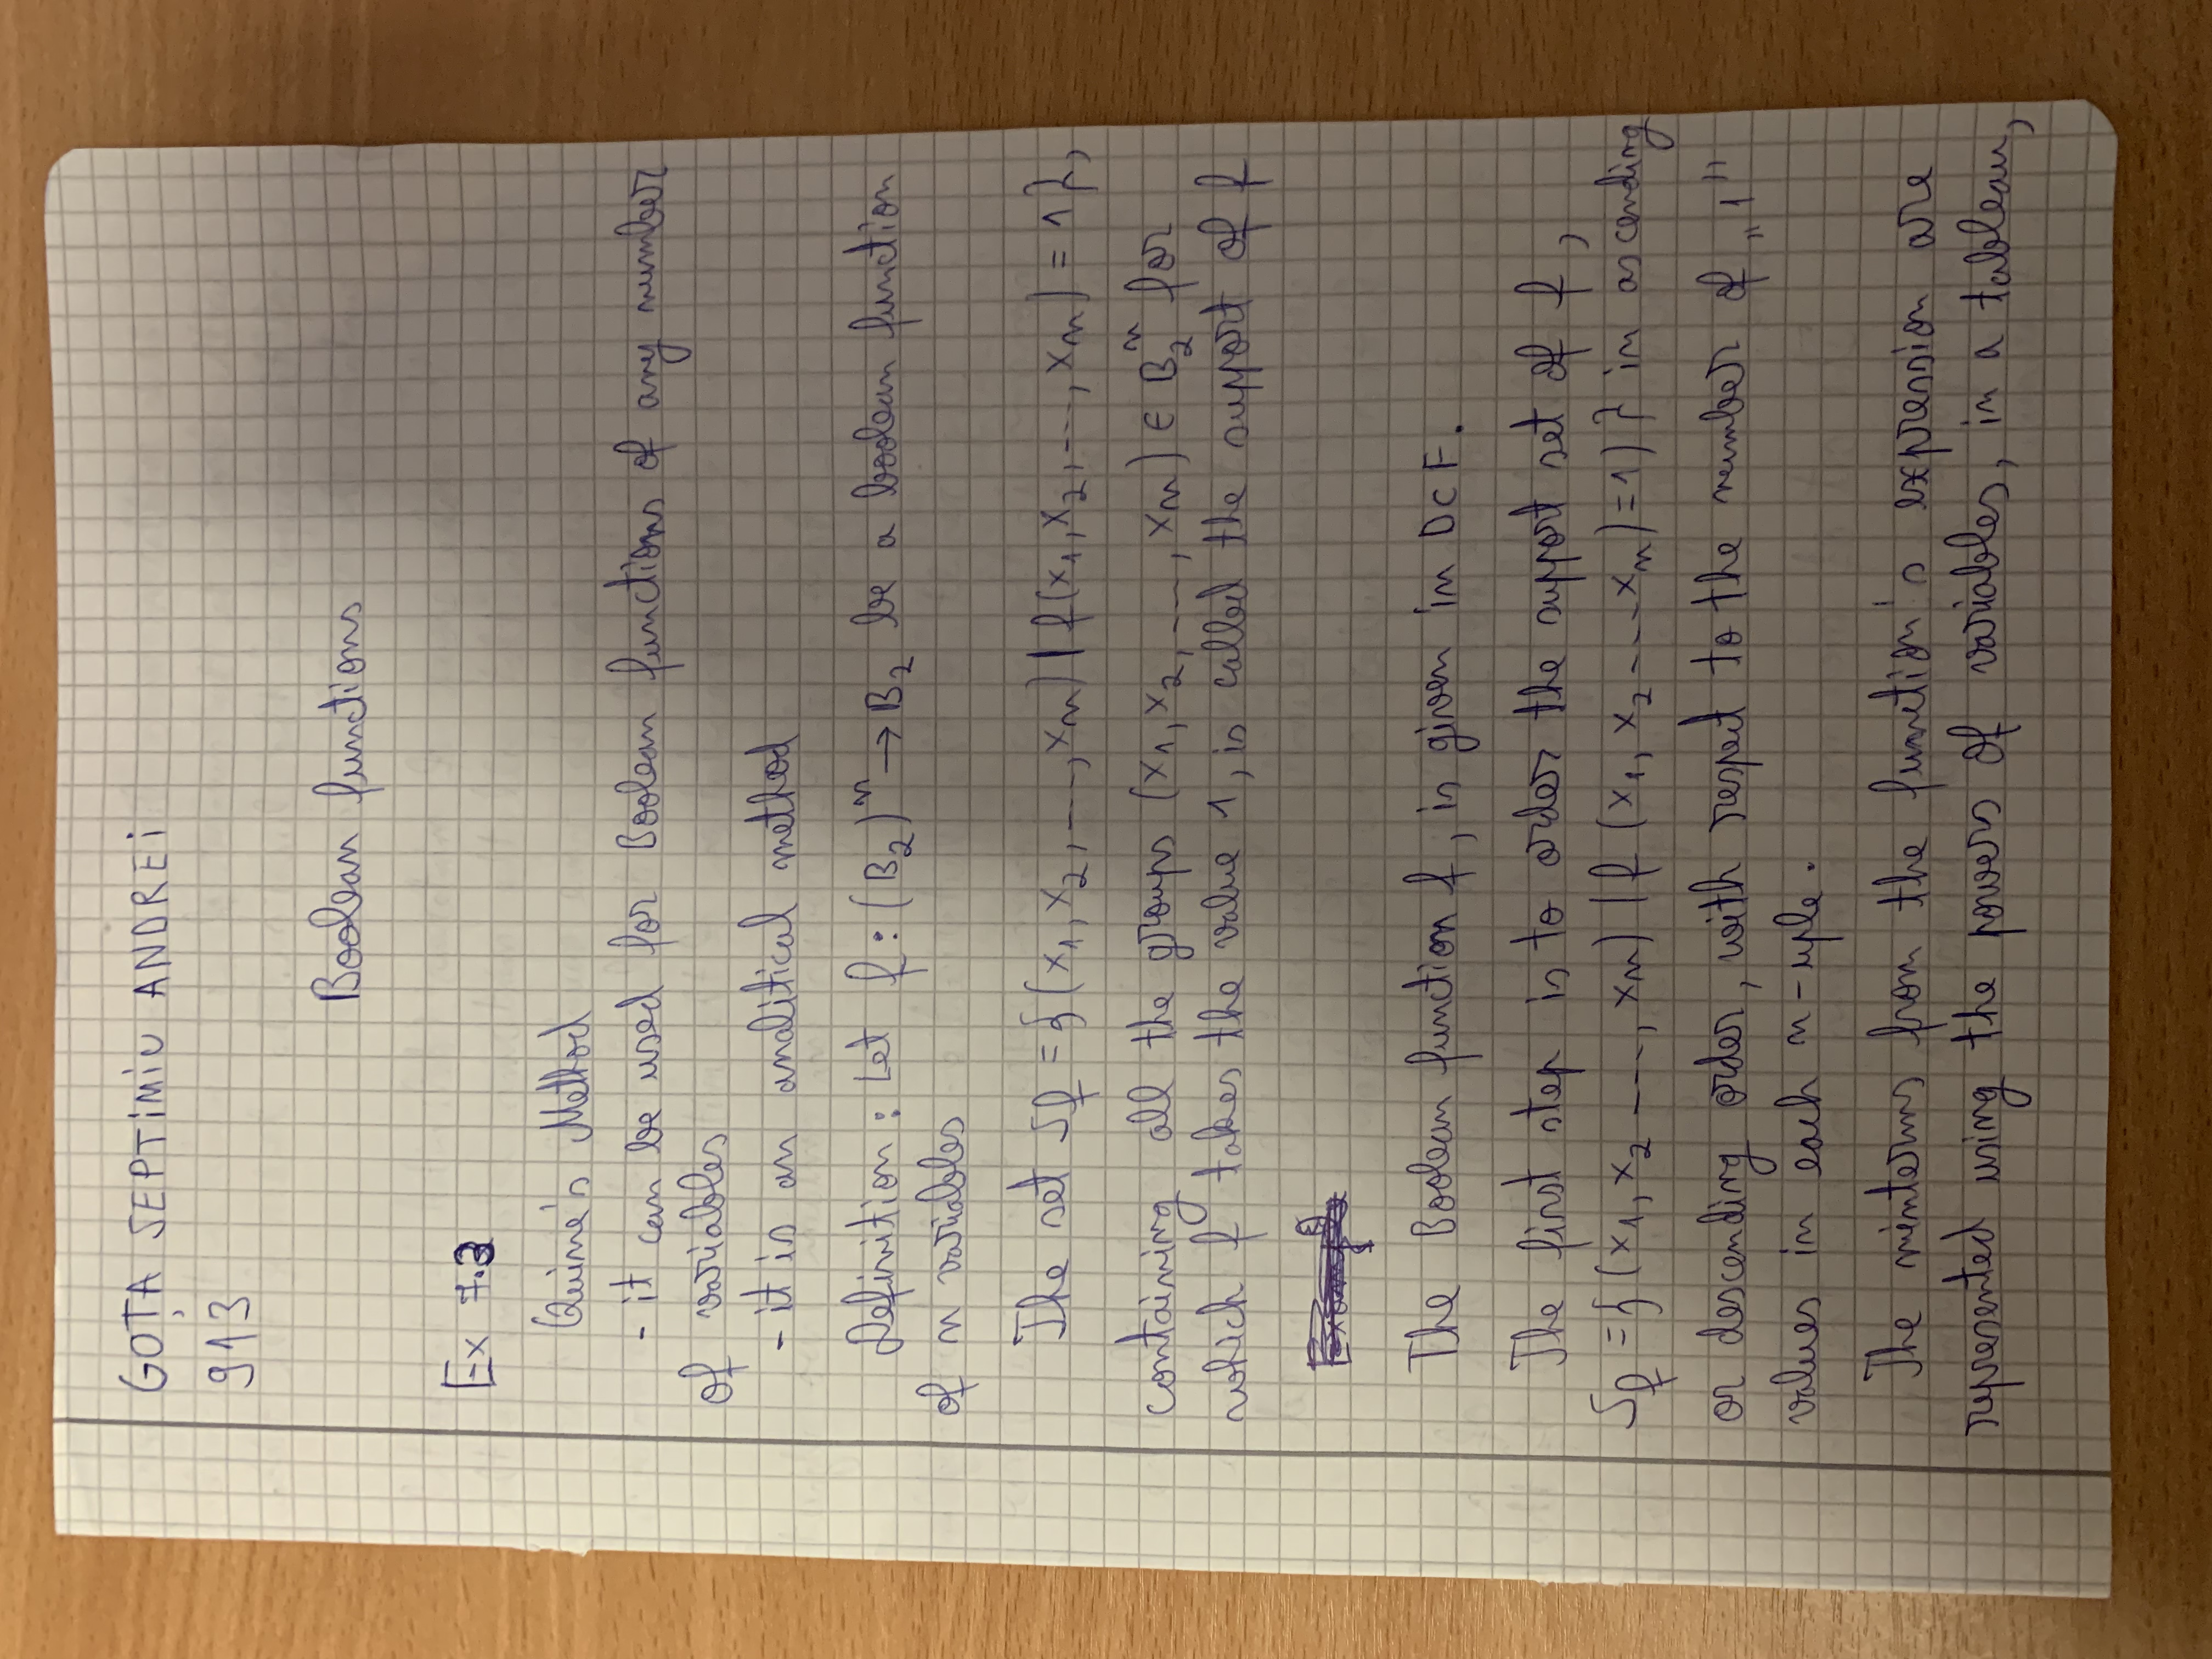 GOȚA SEPTIMIU ANDREI
913
Boolean functions
Ex 7.3
Quine's Method
- it can be used for Boolean functions of any number
of variables
- it is an analitical method
Definition : Let f : (B₂)ⁿ → B₂ be a boolean function
of n variables
The set Sf = {(x₁, x₂, ..., xn) | f(x₁, x₂, ..., xn) = 1},
containing all the groups (x₁, x₂, ..., xn) ∈ B₂ⁿ for
which f takes the value 1, is called the support of f
The Boolean function f, is given in DCF.
The first step is to order the support set of f,
Sf = {(x₁, x₂ ..., xn) | f (x₁, x₂ ... xn) = 1) } in ascending
or descending order, with respect to the number of „1"
values in each n-uple.
The minterms from the function's expression are
represented using the powers of variables, in a tableau,